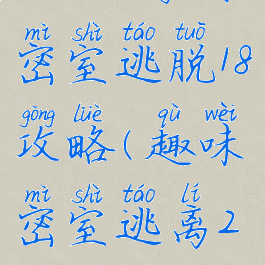 mì shì táo tuō
密室逃脱18
gōng lüè qù wèi
攻略(趣味
mì shì táo lí
密室逃离2